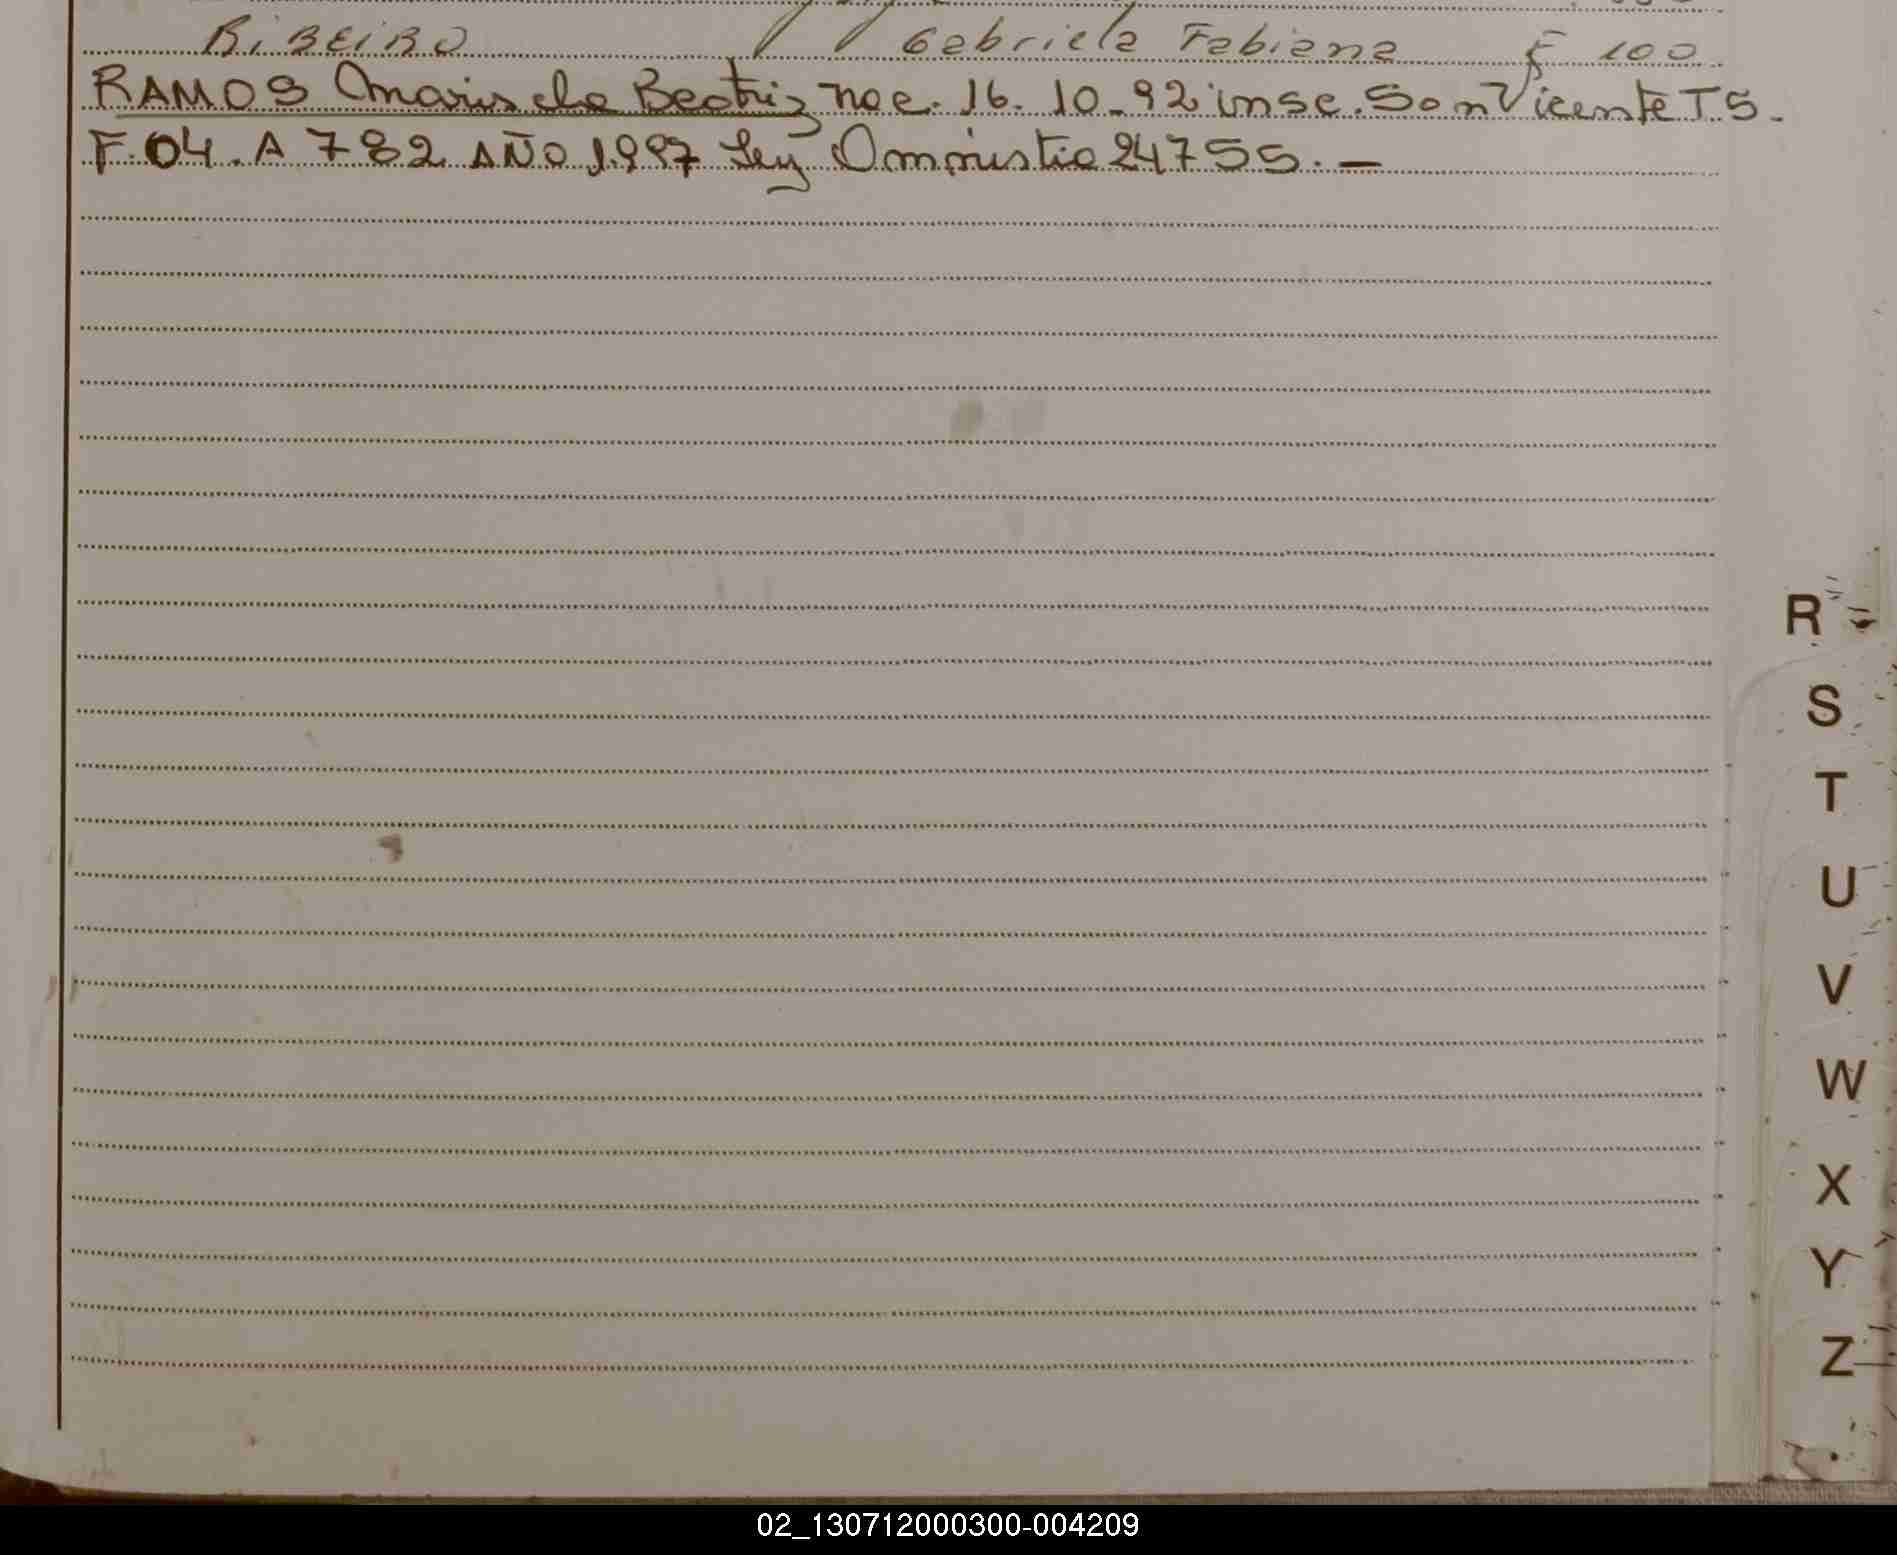 RIBEIRO Gabriela Fabiana F 100
RAMOS Marisela Beatriz nac. 16.10-92 insc. San Vicente T 5-
F. 04. A 782 AÑO 1.997 Ley Amnistia 24755.-
R
S
T
U
V
W
X
Y
Z
02_130712000300-004209